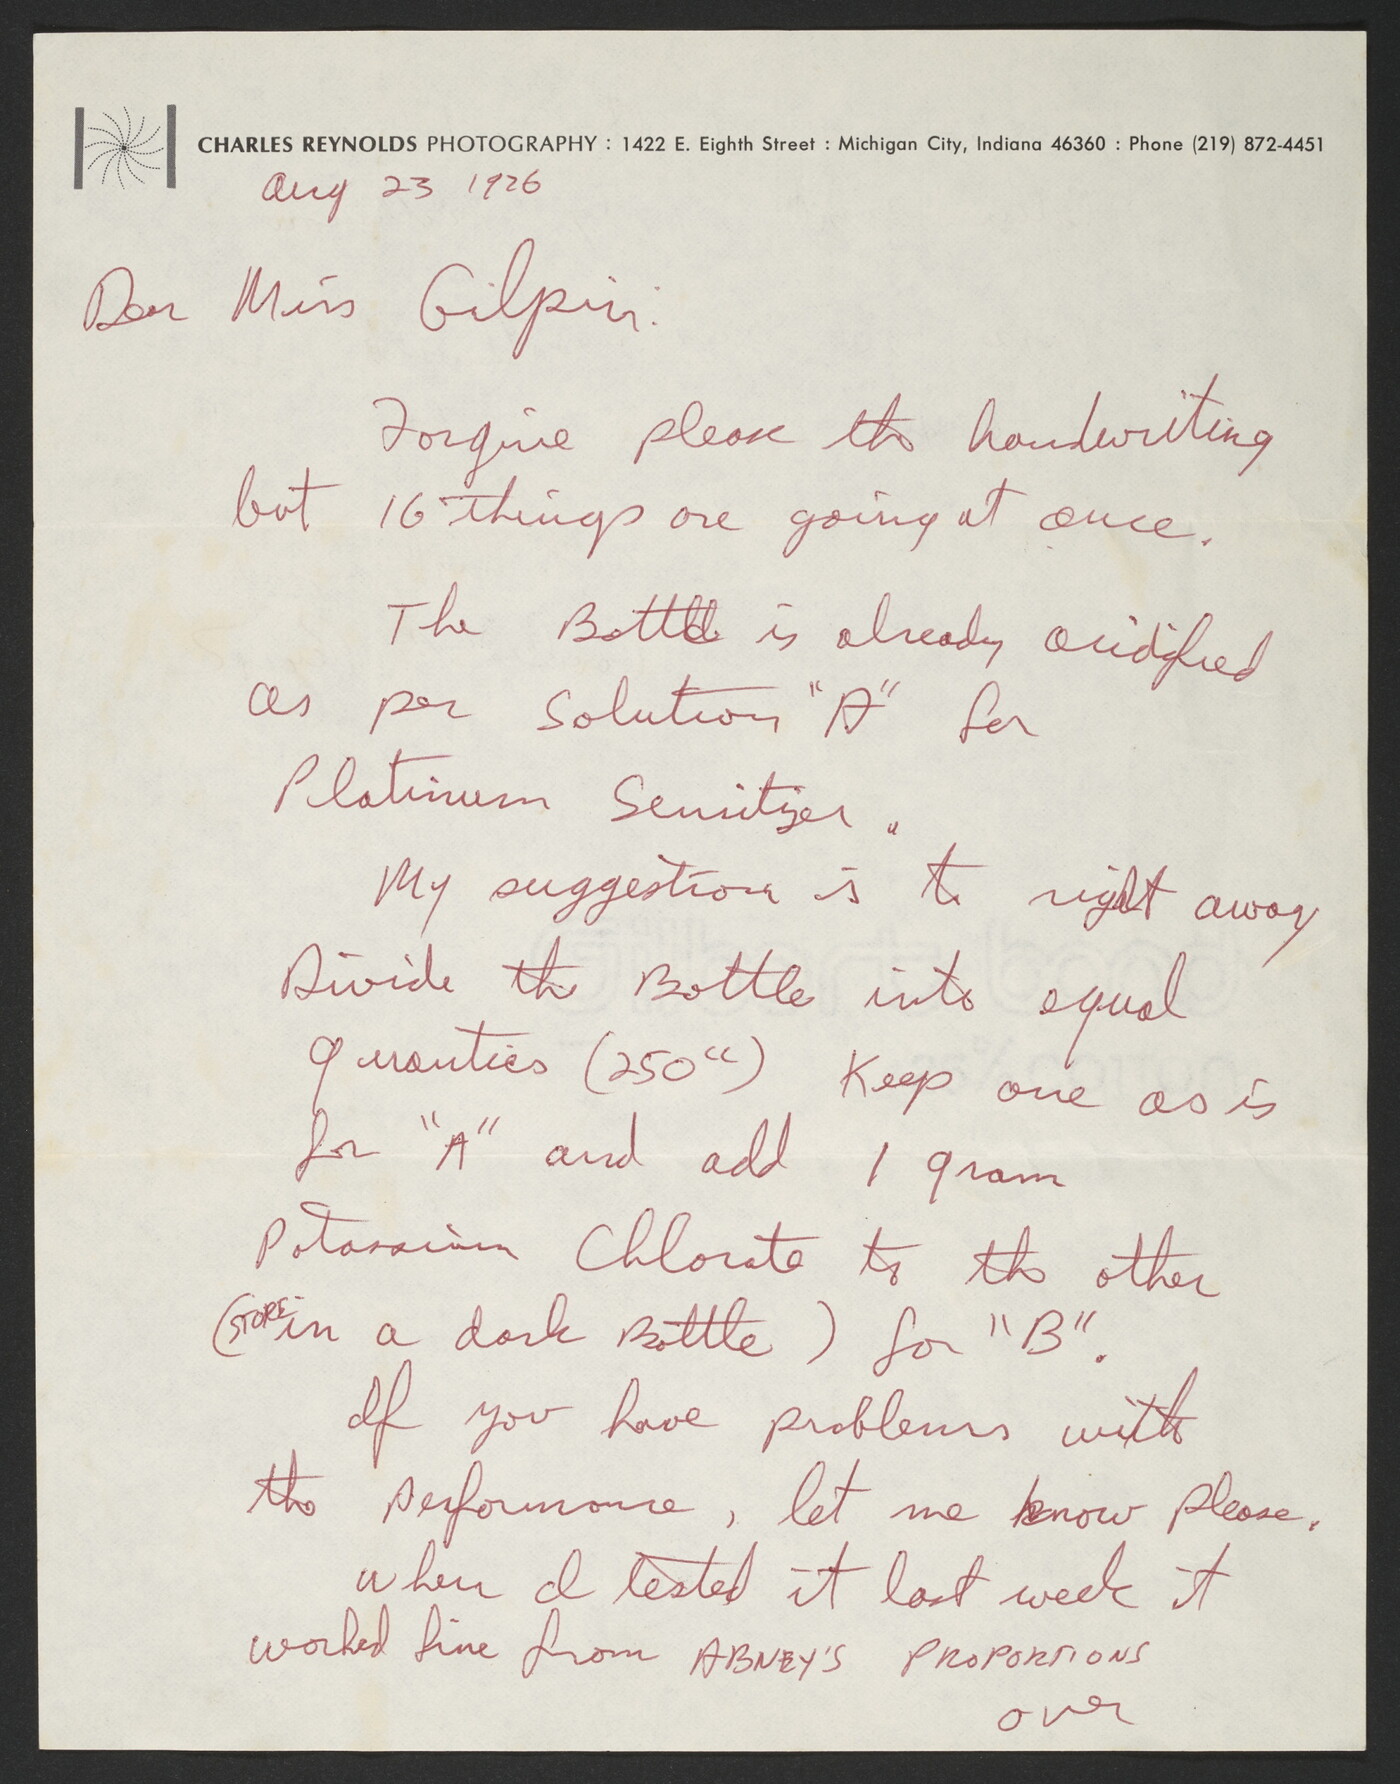 CHARLES REYNOLDS PHOTOGRAPHY : 1422 E. Eighth Street : Michigan City, Indiana 46360 : Phone (219) 872-4451
Aug 23 1976
Dear Miss Gilpin:
Forgive please the handwriting
but 16 things are going at once.
The Bottle is already acidified
as per Solution "A" for
Platinum Sensitizer.
My suggestion is to right away
Divide the Bottle into equal
quanties (250cc) Keep one as is
for "A" and add 1 gram
Potassium Chlorate to the other
(STORE in a dark Bottle) for "B".
If you have problems with
the performance, let me know please.
when I tested it last week it
worked fine from ABNEY'S PROPORTIONS
over